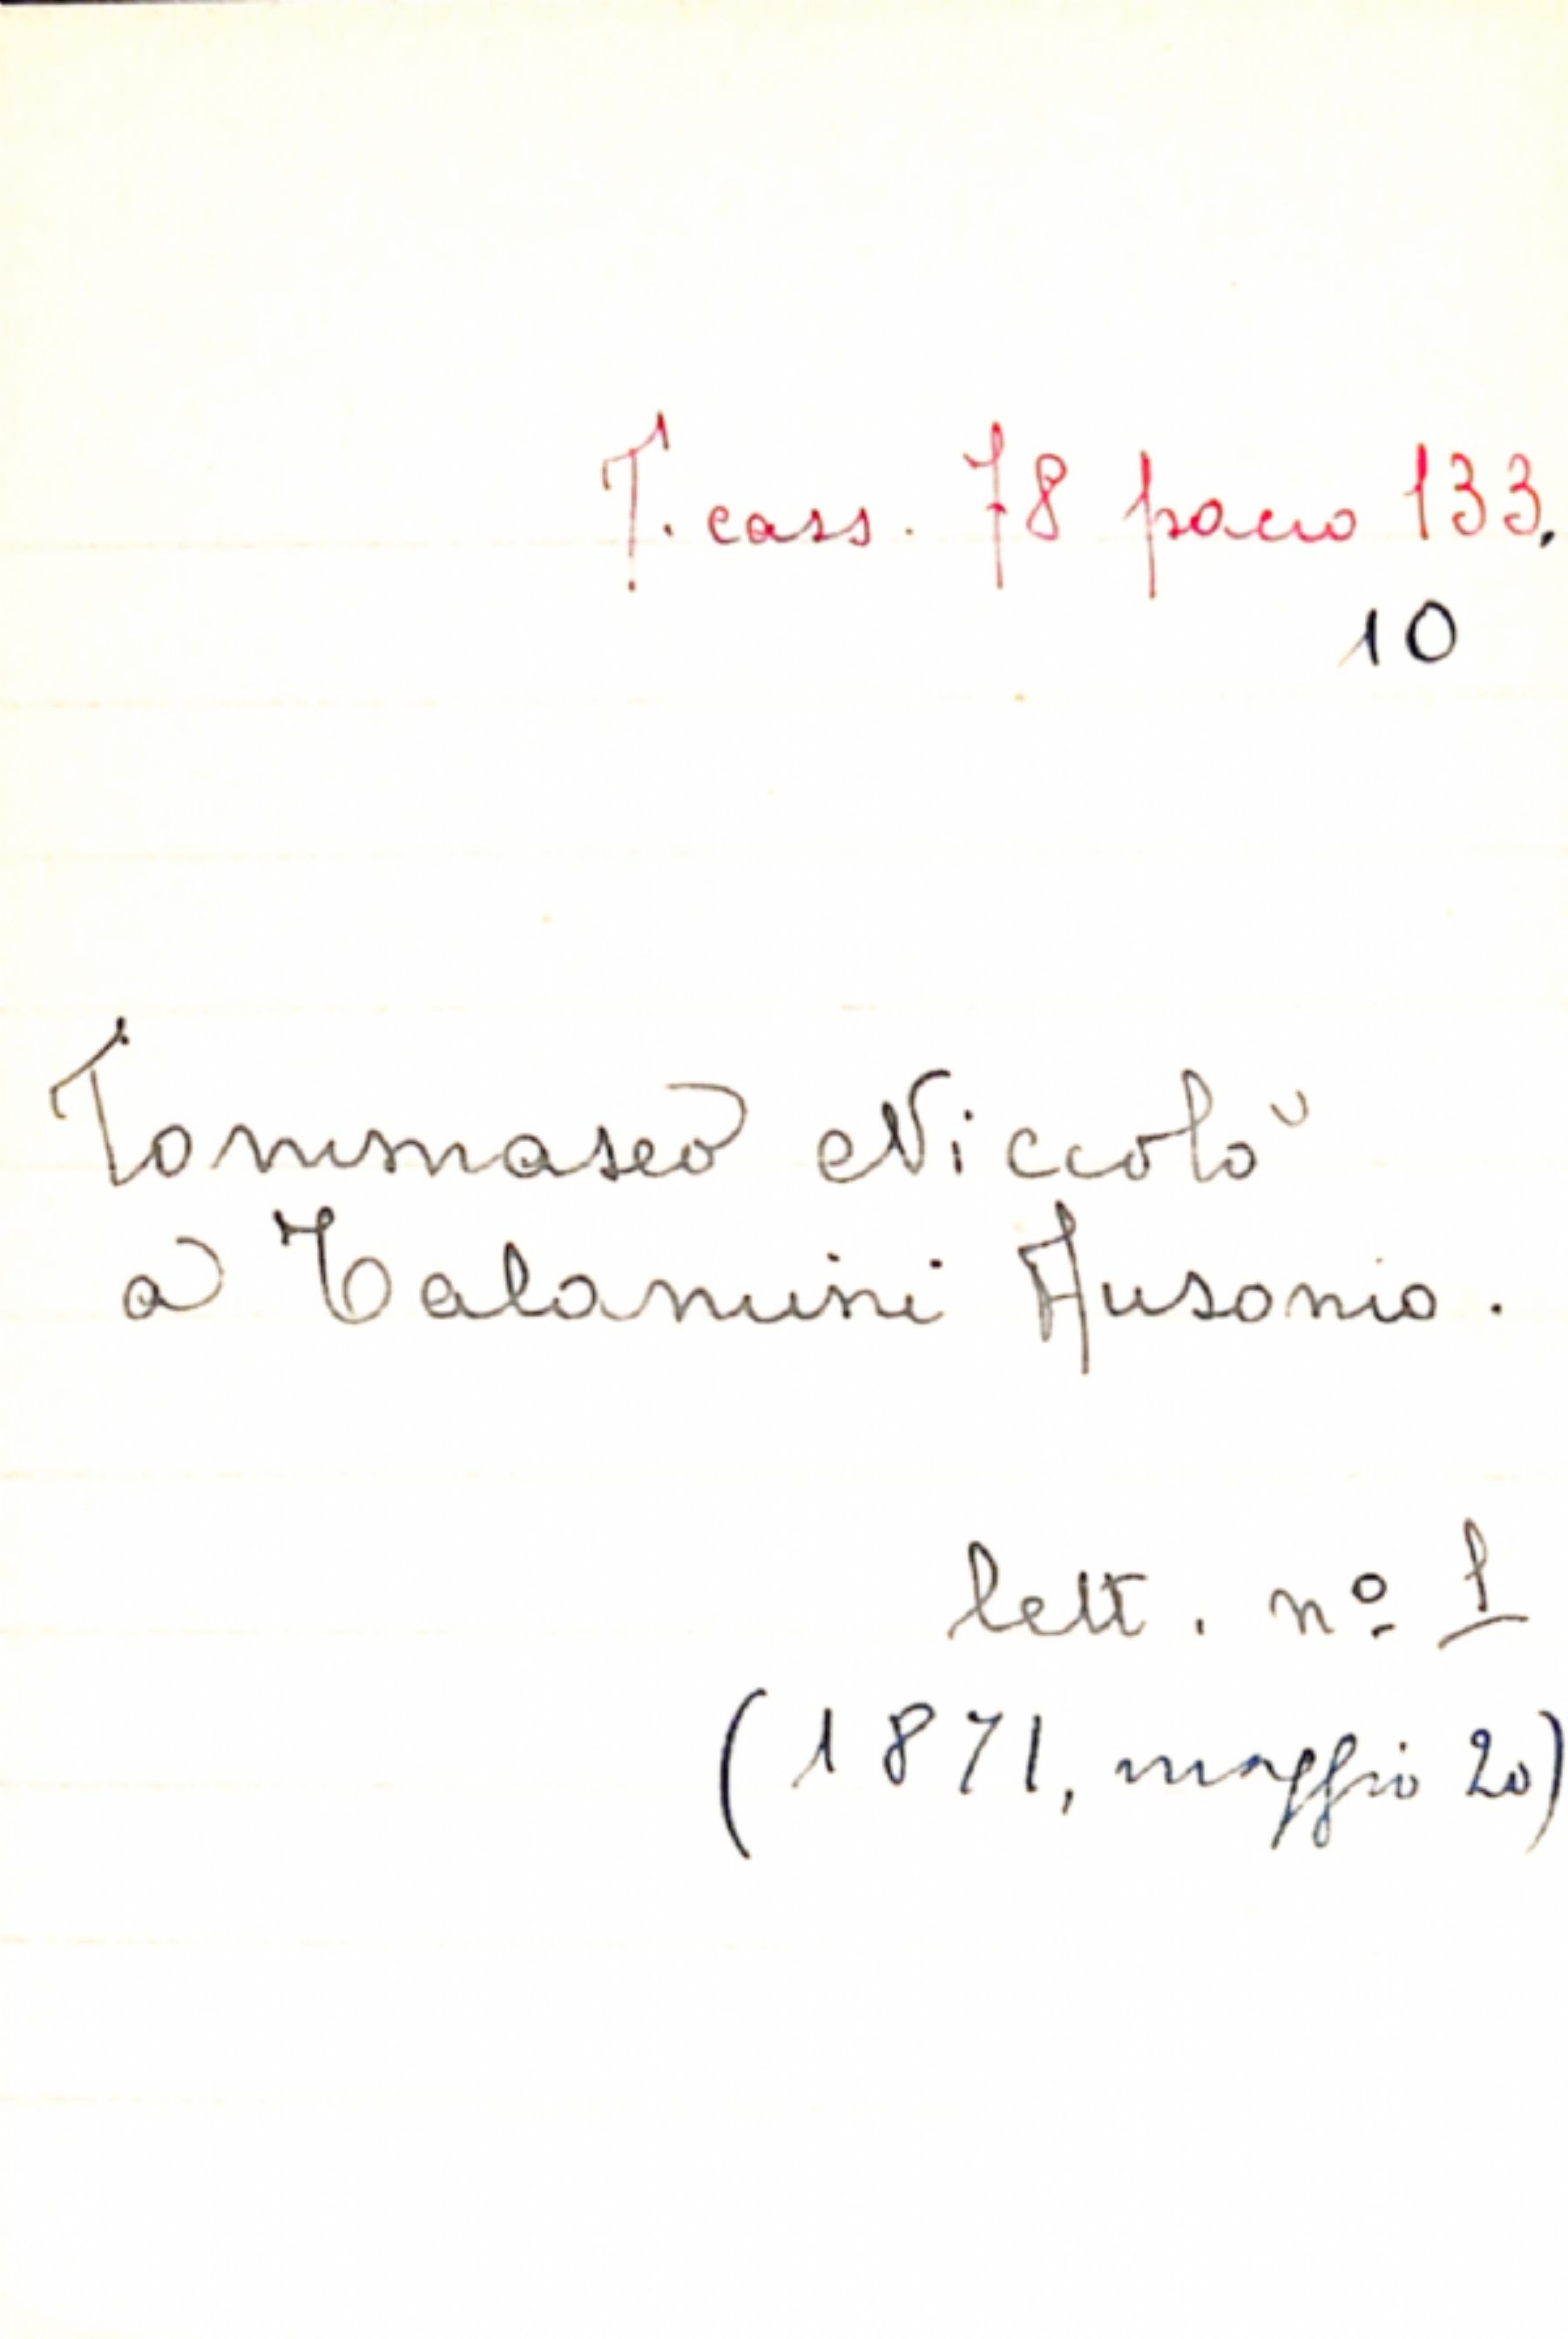 T. cass. 78 pacco 133.
10
Tommaseo Niccolò
a Talamini Ausonio.
lett. nº 1
(1871, maggio 20)